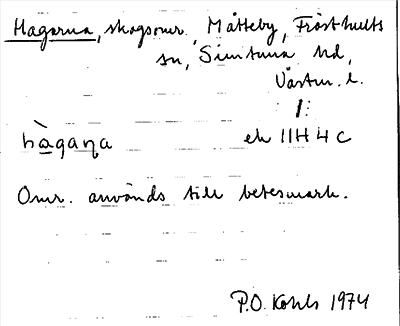 Hagarna, skogsomr. Måtteby, Frösthults
sn, Simtuna hd,
Västm. l.
hàgaṇa ek 11H 4 C
Omr. används till betesmark.
P.O. Kohls 1974